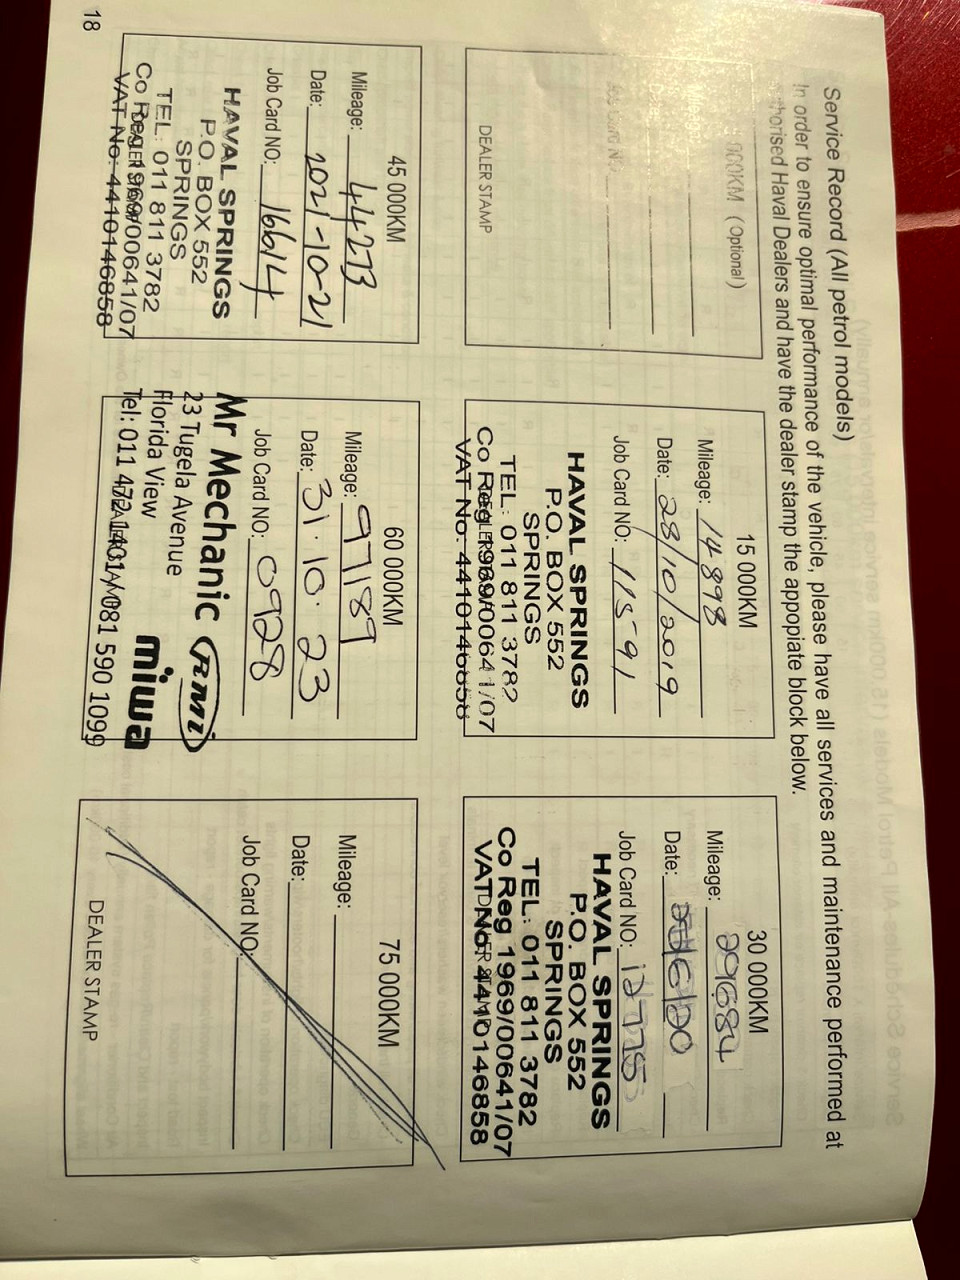 Service Record (All petrol models)
In order to ensure optimal performance of the vehicle, please have all services and maintenance performed at
authorised Haval Dealers and have the dealer stamp the appopiate block below.
000KM (Optional)
DEALER STAMP
15 000KM
Mileage: 14898
Date: 28/10/2019
Job Card NO: 11591
HAVAL SPRINGS
P.O. BOX 552
SPRINGS
TEL: 011 811 3782
Co Reg 1969/00641/07
VAT No: 4410146858
30 000KM
Mileage: 29684
Date:
Job Card NO: 12775
HAVAL SPRINGS
P.O. BOX 552
SPRINGS
TEL: 011 811 3782
Co Reg 1969/00641/07
VAT No: 4410146858
45 000KM
Mileage: 44273
Date: 2021-10-21
Job Card NO: 16614
HAVAL SPRINGS
P.O. BOX 552
SPRINGS
TEL: 011 811 3782
Co Reg 1969/00641/07
VAT No: 4410146858
60 000KM
Mileage: 97189
Date: 31.10.23
Job Card NO: 0928
Mr Mechanic rmi
23 Tugela Avenue
Florida View miwa
Tel: 011 472 1401/ 081 590 1099
75 000KM
Mileage:
Date:
Job Card NO:
DEALER STAMP
18